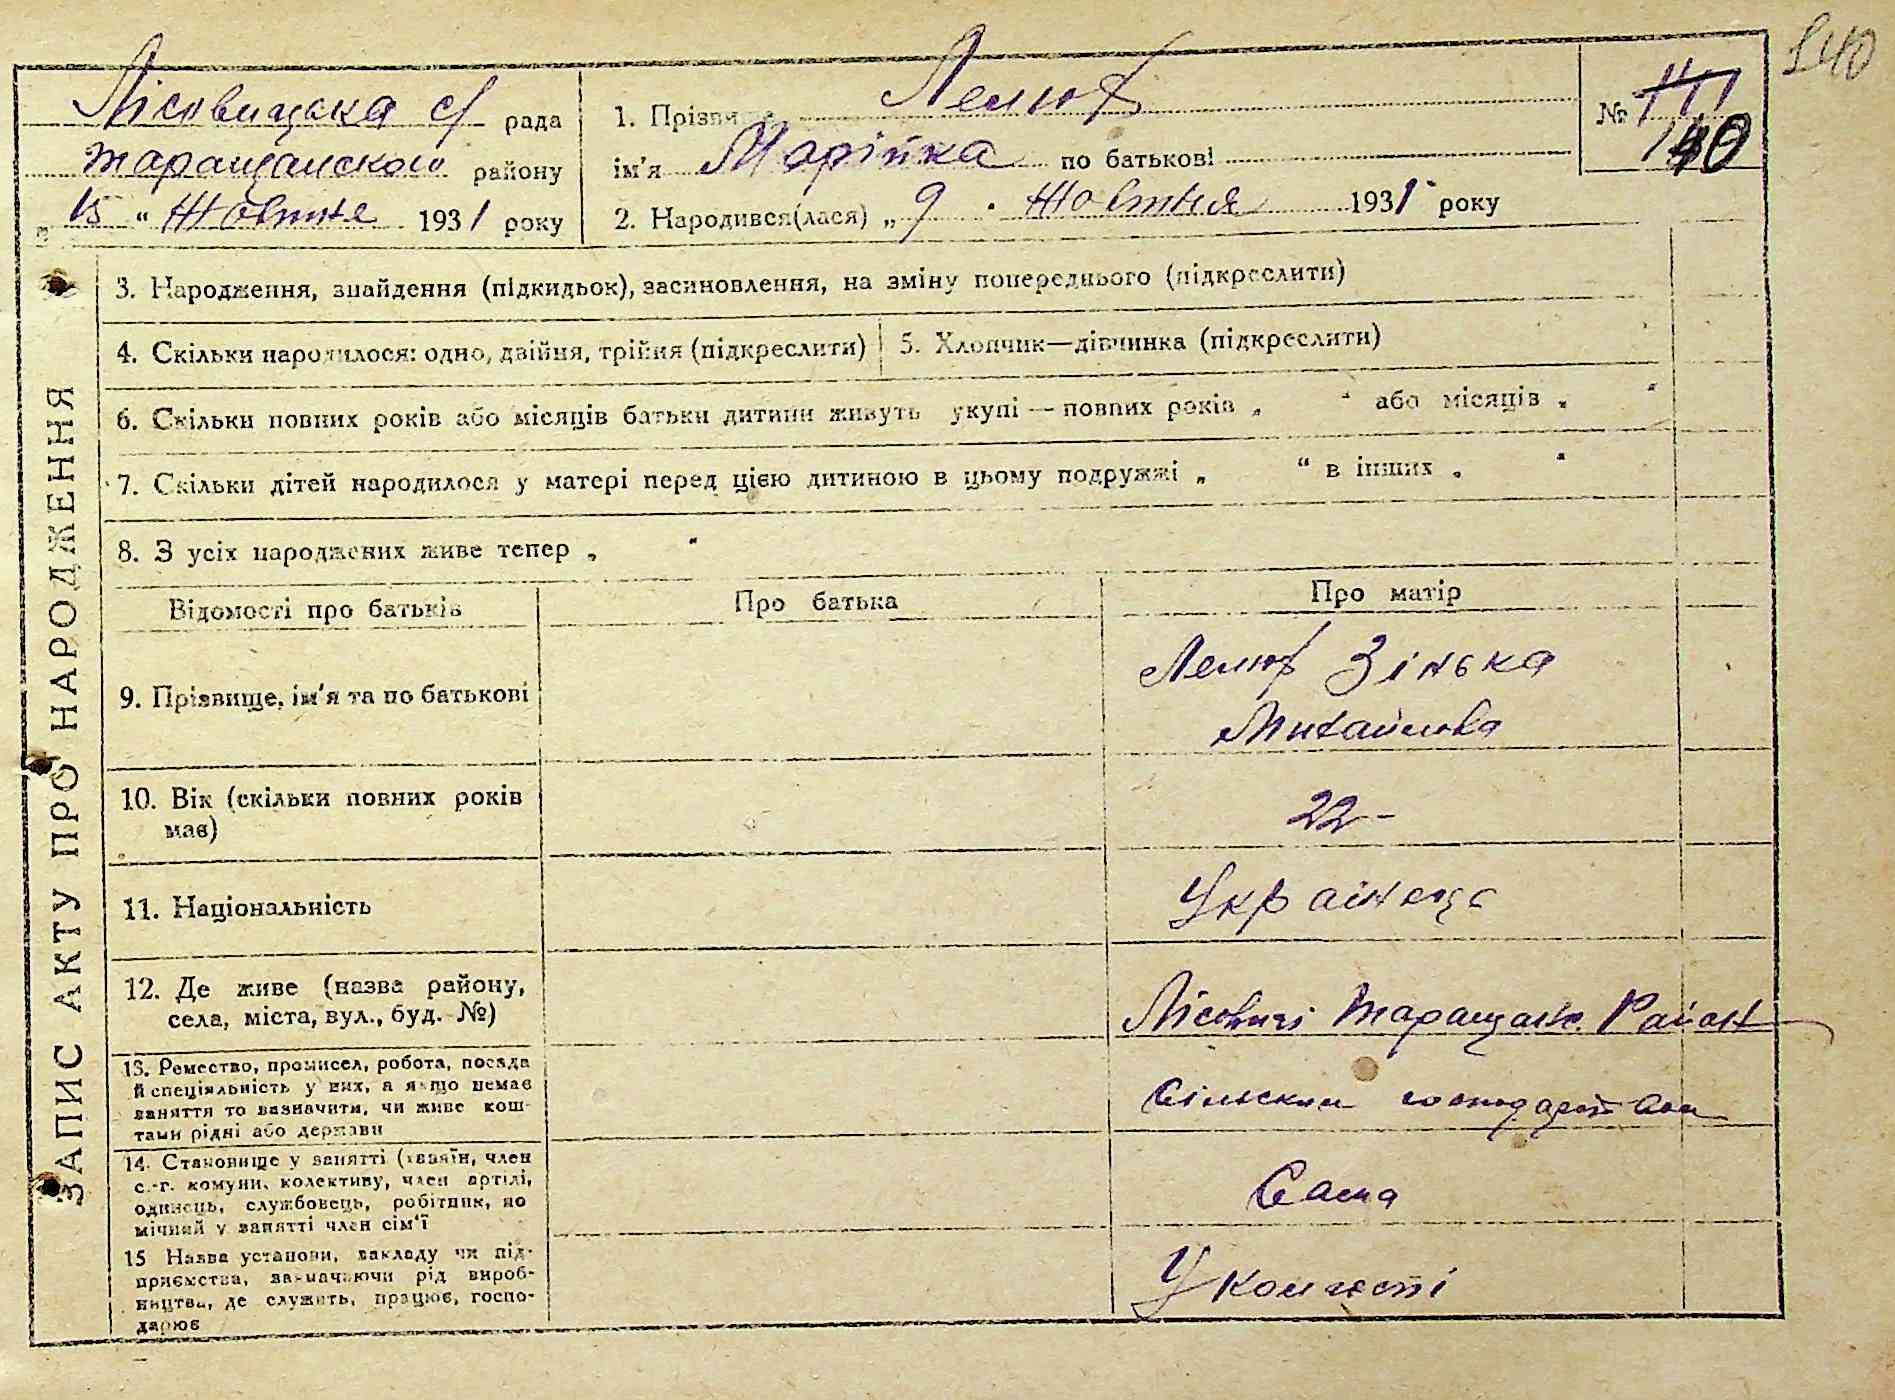 140
Лісовицька с/ рада
Таращанского району
15 " Жовтня 1931 року
1. Прізвище Лелюх
ім'я Марійка по батькові
2. Народився(лася) „ 9 . Жовтня 1931 року
№ 111
140
ЗАПИС АКТУ ПРО НАРОДЖЕННЯ
3. Народження, знайдення (підкидьок), засиновлення, на зміну попереднього (підкреслити)
4. Скільки народилося: одно, двійня, трійня (підкреслити) 5. Хлопчик—дівчинка (підкреслити)
6. Скільки повних років або місяців батьки дитини живуть укупі — повних років „ " або місяців „ "
7. Скільки дітей народилося у матері перед цією дитиною в цьому подружжі „ " в інших „ "
8. З усіх народжених живе тепер „ "
Відомості про батьків Про батька Про матір
9. Прізвище, ім'я та по батькові
Лелюх Зінька
Михайлова
10. Вік (скільки повних років
має)
22 -
11. Національність
Українца
12. Де живе (назва району,
села, міста, вул., буд. №)
Лісовичі Таращанс. Район
13. Ремество, промисел, робота, посада
й спеціяльність у них, а якщо немає
заняття то зазначити, чи живе кош-
тами рідні або держави
Сільским господарством
14. Становище у занятті (хазяїн, член
с.-г. комуни, колективу, член артілі,
одинець, службовець, робітник, по
мічний у занятті член сім'ї
Сама
15 Назва установи, закладу чи під-
приємства, зазначаючи рід вироб-
ництва, де служить, працює, госпо-
дарює
У